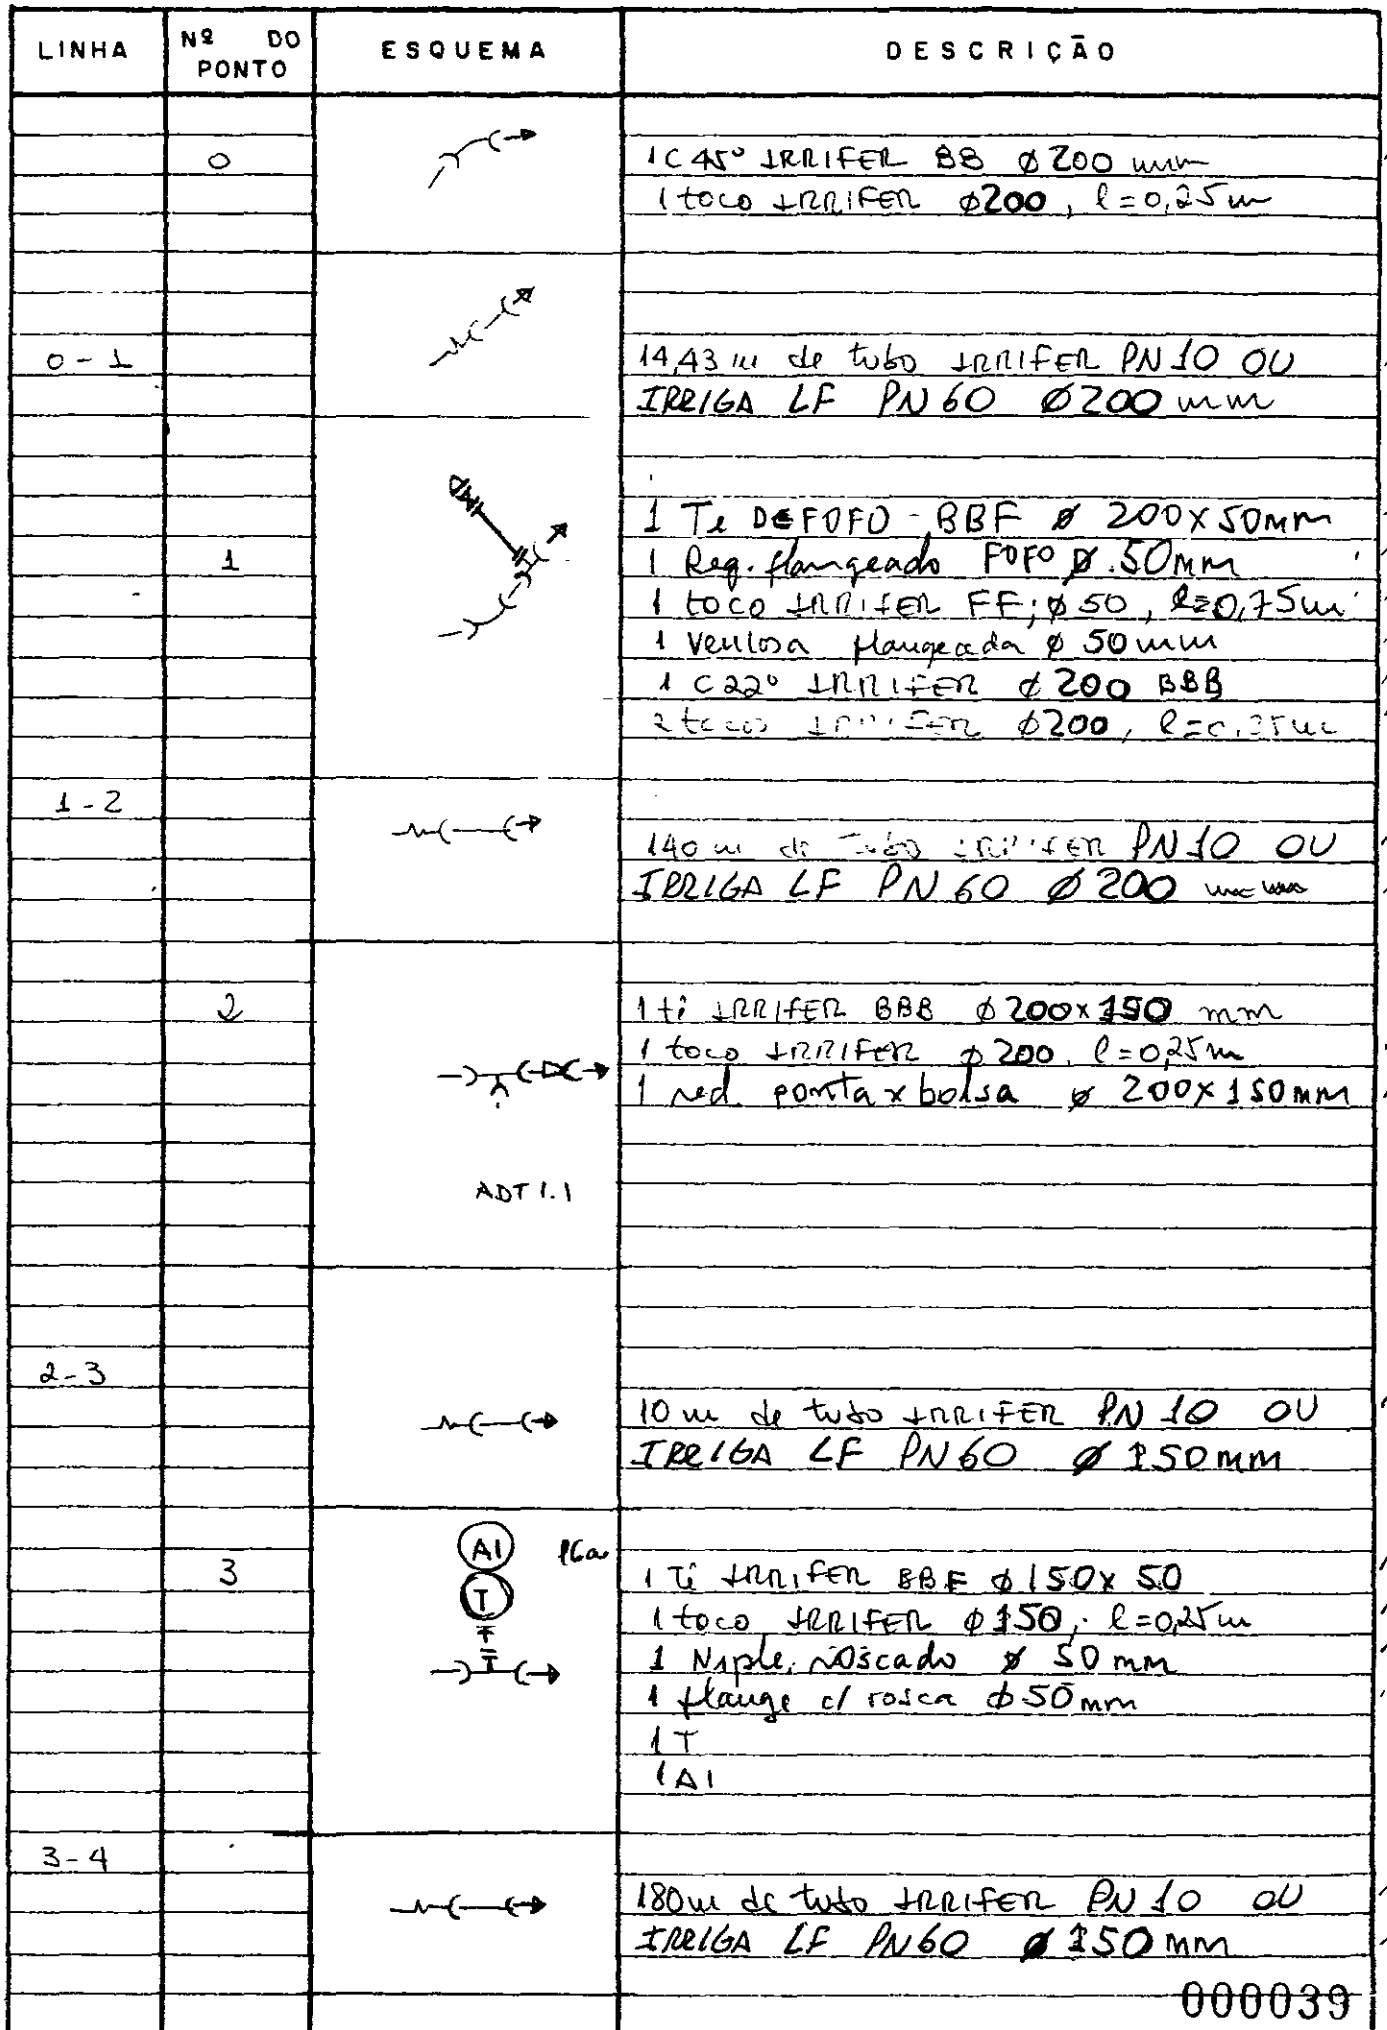 LINHA
Nº DO PONTO
ESQUEMA
DESCRIÇÃO
0
1 C 45° IRRIFER BB Ø 200 mm
1 toco IRRIFER Ø200, l=0,25 m
0-1
14,43 m de tubo IRRIFER PN 10 OU
IRRIGA LF PN 60 Ø 200 mm
1
1 Te DEFOFO - BBF Ø 200 x 50mm
1 Reg. flangeado FOFO Ø 50mm
1 toco IRRIFER FF; Ø 50, l=0,75m
1 Ventosa flangeada Ø 50mm
1 C 22° IRRIFER Ø 200 BBB
2 tocos IRRIFER Ø200, l=0,25m
1-2
140 m de tubo IRRIFER PN 10 OU
IRRIGA LF PN 60 Ø 200 mm
2
1 tê IRRIFER BBB Ø 200x150 mm
1 toco IRRIFER Ø 200, l=0,25m
1 red. ponta x bolsa Ø 200x150mm
ADT 1.1
2-3
10 m de tubo IRRIFER PN 10 OU
IRRIGA LF PN 60 Ø 150mm
3
A1
T
1 Tê IRRIFER BBF Ø 150x 50
1 toco IRRIFER Ø 150, l=0,25m
1 Niple roscado Ø 50 mm
1 flange c/ rosca Ø 50mm
1 T
1 A1
3-4
180m de tubo IRRIFER PN 10 OU
IRRIGA LF PN 60 Ø 150 mm
000039